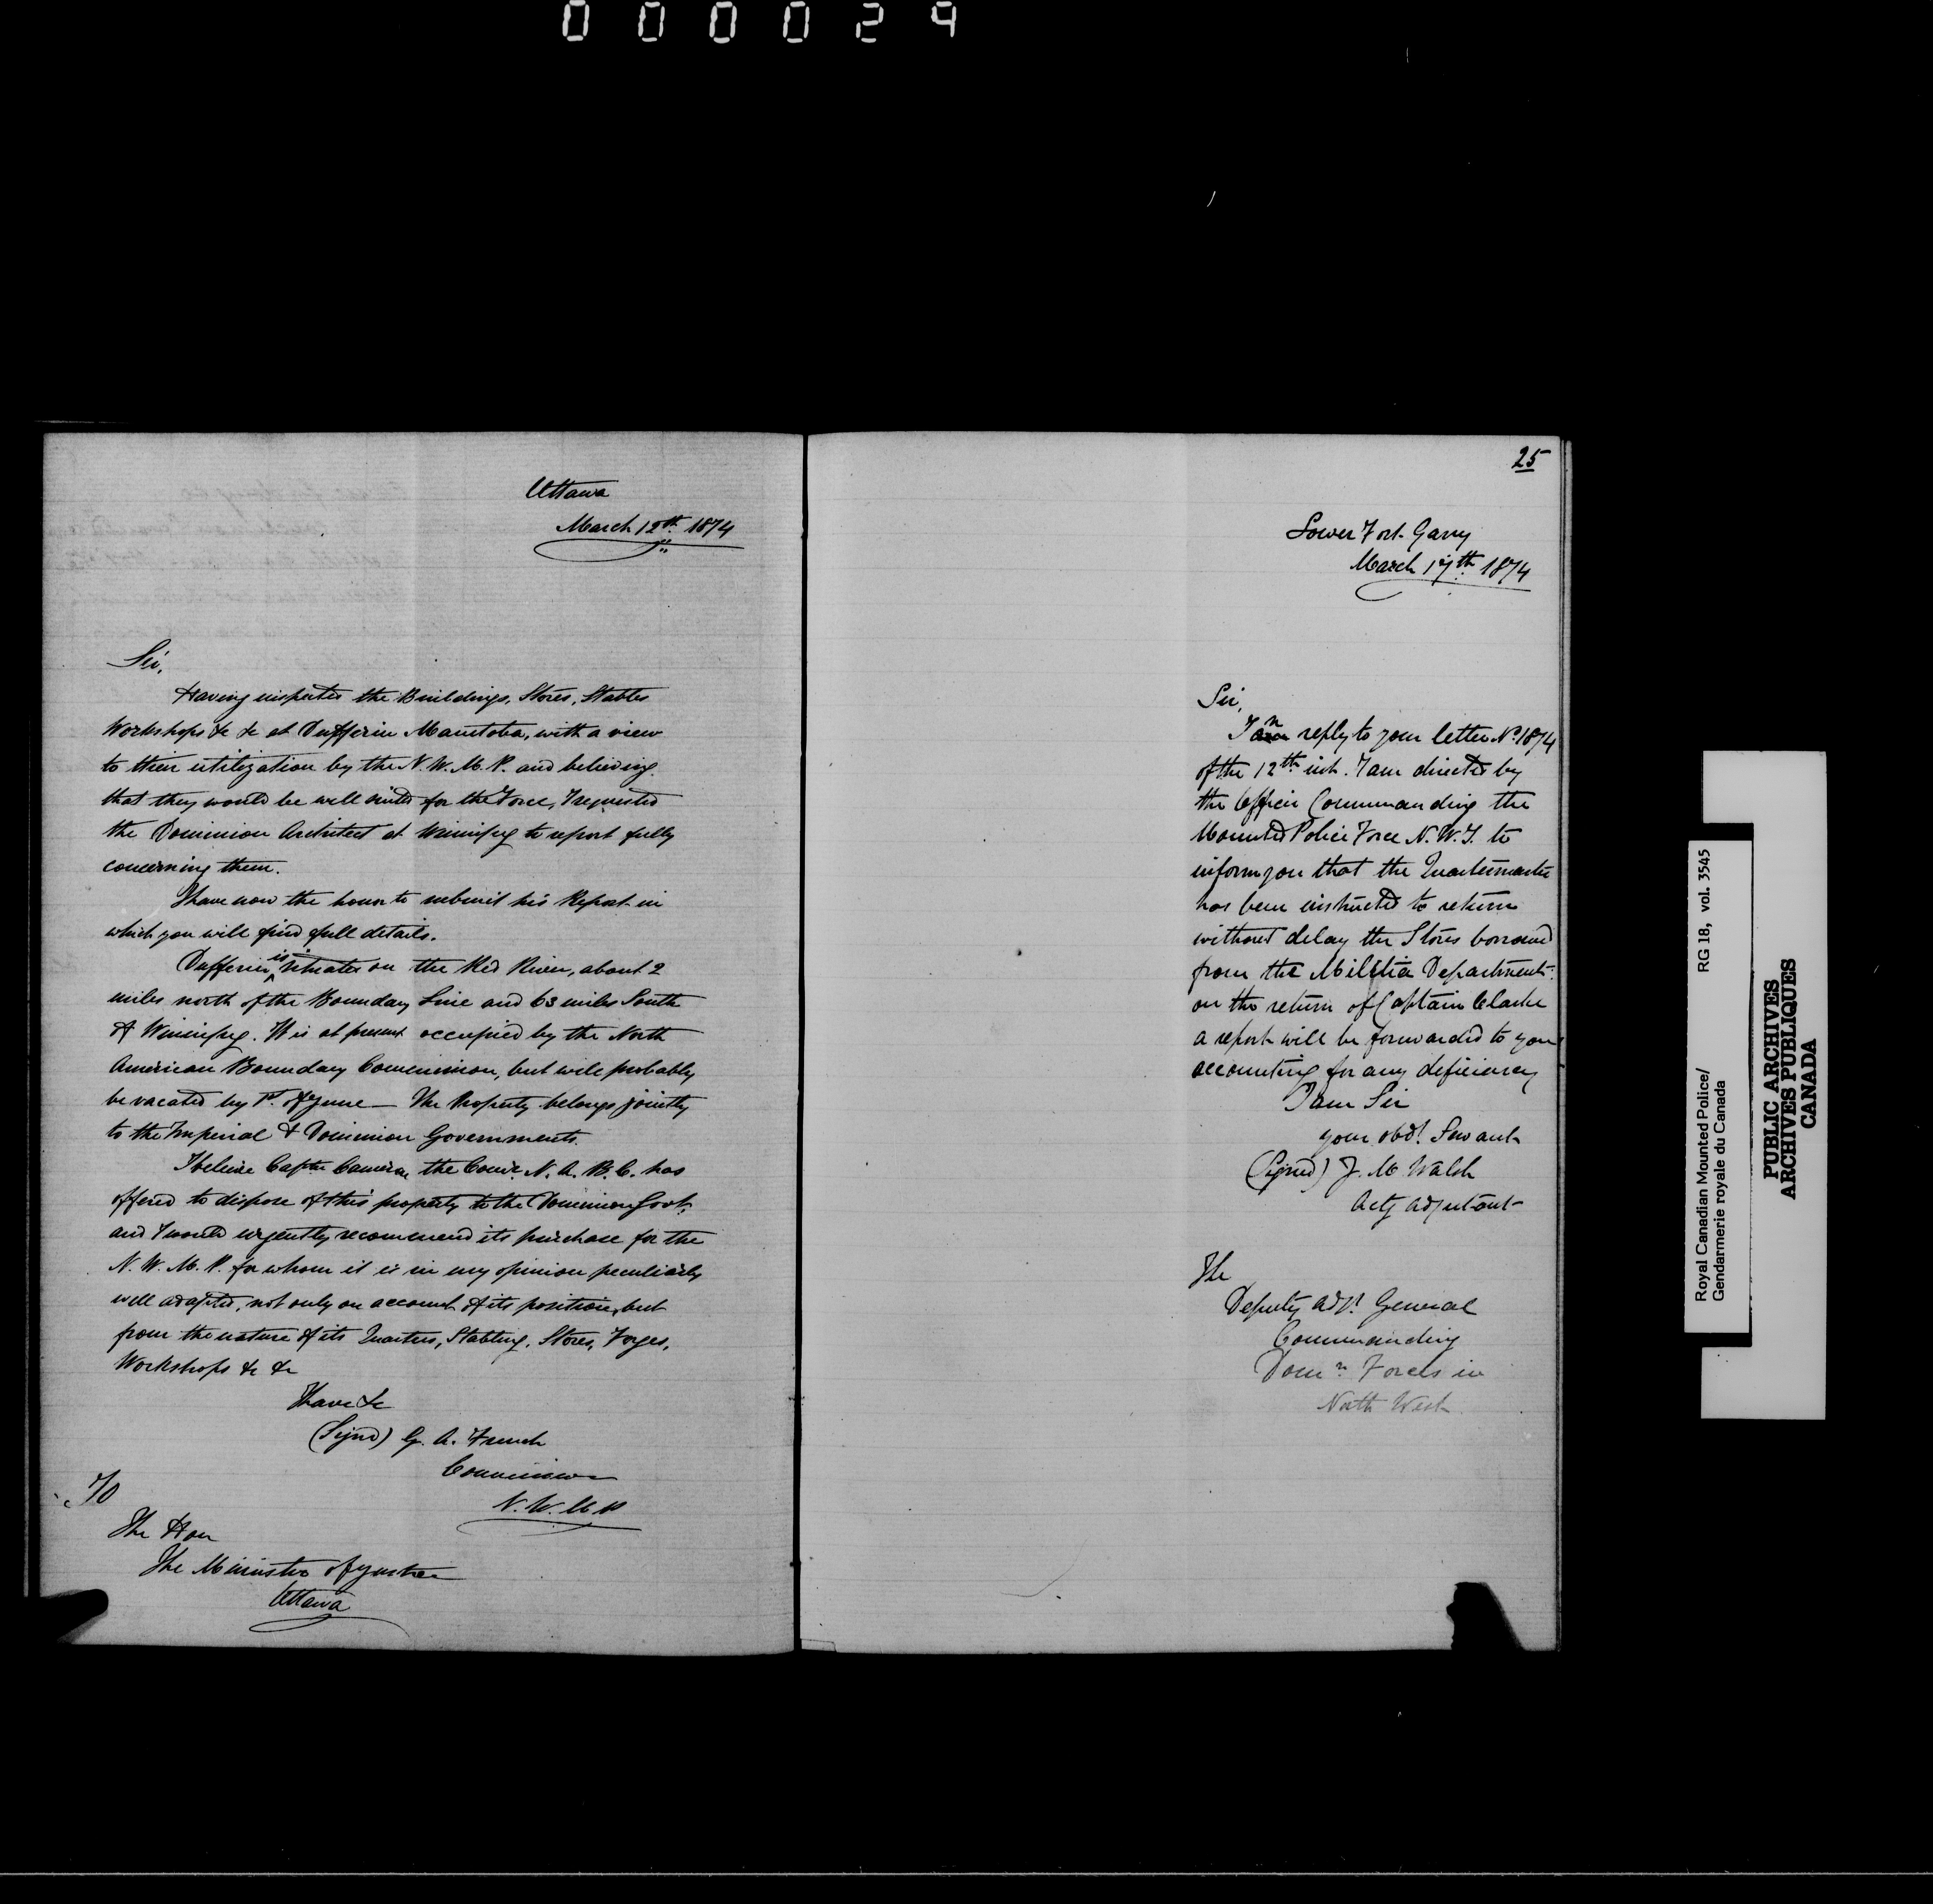 000029
Ottawa
March 12th 1874
Sir,
Having inspected the Buildings, Stores, Stables
Workshops &c &c at Dufferin Manitoba, with a view
to their utilization by the N. W. M. P. and believing
that they would be well suited for the Force, I requested
the Dominion Architect at Winnipeg to report fully
concerning them.
I have now the honor to submit his Report in
which you will find full details.
Dufferin is situated on the Red River, about 2
miles north of the Boundary Line and 63 miles South
of Winnipeg. It is at present occupied by the North
American Boundary Commission, but will probably
be vacated by 1st. of June — The Property belongs jointly
to the Imperial & Dominion Governments.
I believe Captn Cameron the Comr. N. A. B. C. has
offered to dispose of this property to the Dominion Govt.
and I would urgently recommend its purchase for the
N. W. M. P. for whom it is in my opinion peculiarly
well adapted, not only on account of its position, but
from the nature of its Quarters, Stabling, Stores, Forges,
Workshops &c &c
I have &c
(Signd) G. A. French
Commissioner
N. W. M P
To
The Hon
The Minister of Justice
Ottawa
25
Lower Fort Garry
March 17th 1874
Sir,
In reply to your letter No 1874
of the 12th inst. I am directed by
the Officer Commanding the
Mounted Police Force N. W. T. to
inform you that the Quartermaster
has been instructed to return
without delay the Stores borrowed
from the Militia Department.
on the return of Captain Clarke
a report will be forwarded to you
accounting for any deficiency
I am Sir
your obdt Servant
(Signed) J. M Walsh
Actg Adjutant
The
Deputy Adjt General
Commanding
Domn Forces in
North West
Royal Canadian Mounted Police/ RG 18, vol. 3545
Gendarmerie royale du Canada
PUBLIC ARCHIVES
ARCHIVES PUBLIQUES
CANADA